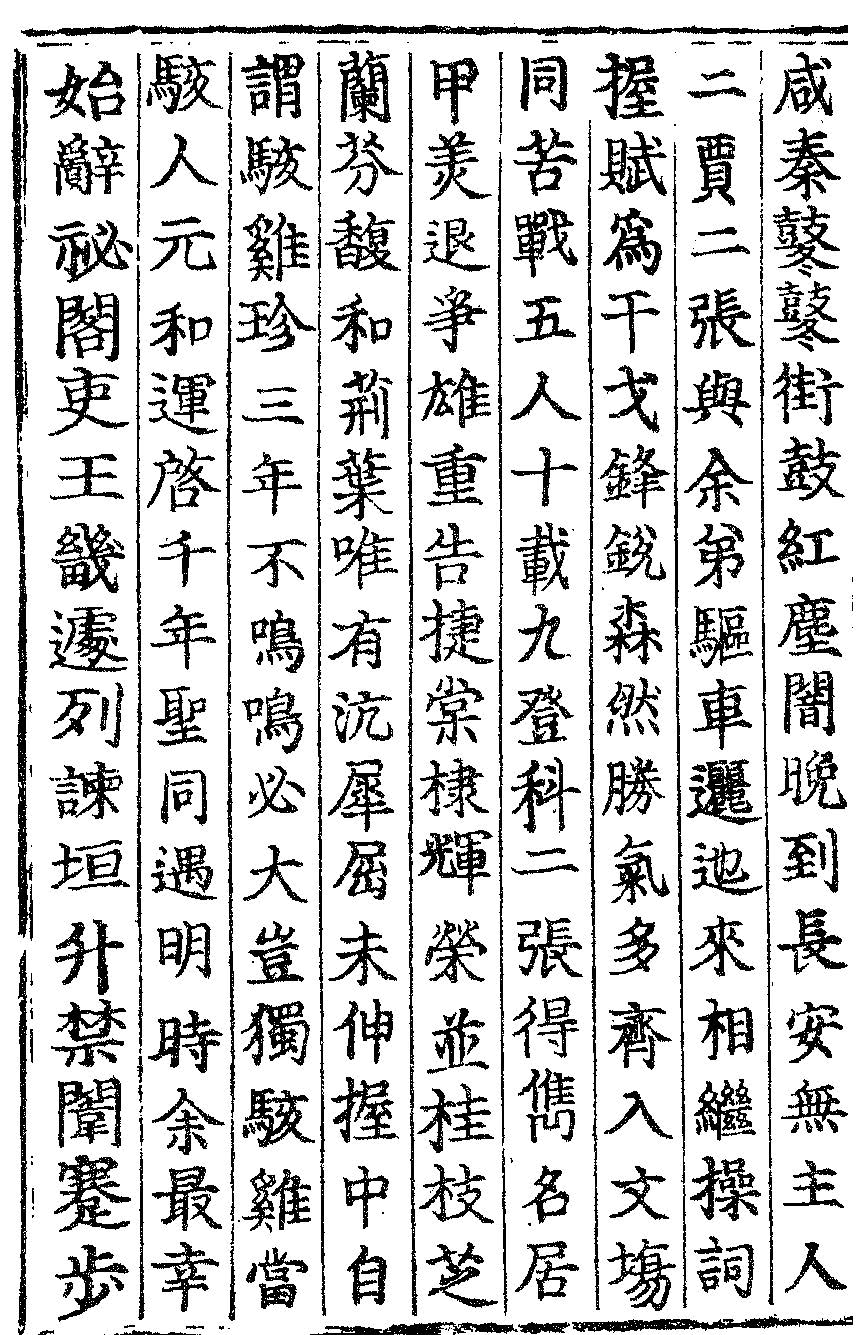 咸秦鼕鼕街鼓紅塵闇晚到長安無主人
二賈二張與余弟驅車邐迆來相繼操詞
握賦爲干戈鋒銳森然勝氣多齊入文塲
同苦戰五人十載九登科二張得雋名居
甲美退爭雄重告捷棠棣輝榮並桂枝芝
蘭芬馥和荊葉唯有沆犀屈未伸握中自
謂駭雞珍三年不鳴鳴必大豈獨駭雞當
駭人元和運啓千年聖同遇明時余最幸
始辭祕閣吏王畿遽列諫垣升禁闈蹇步